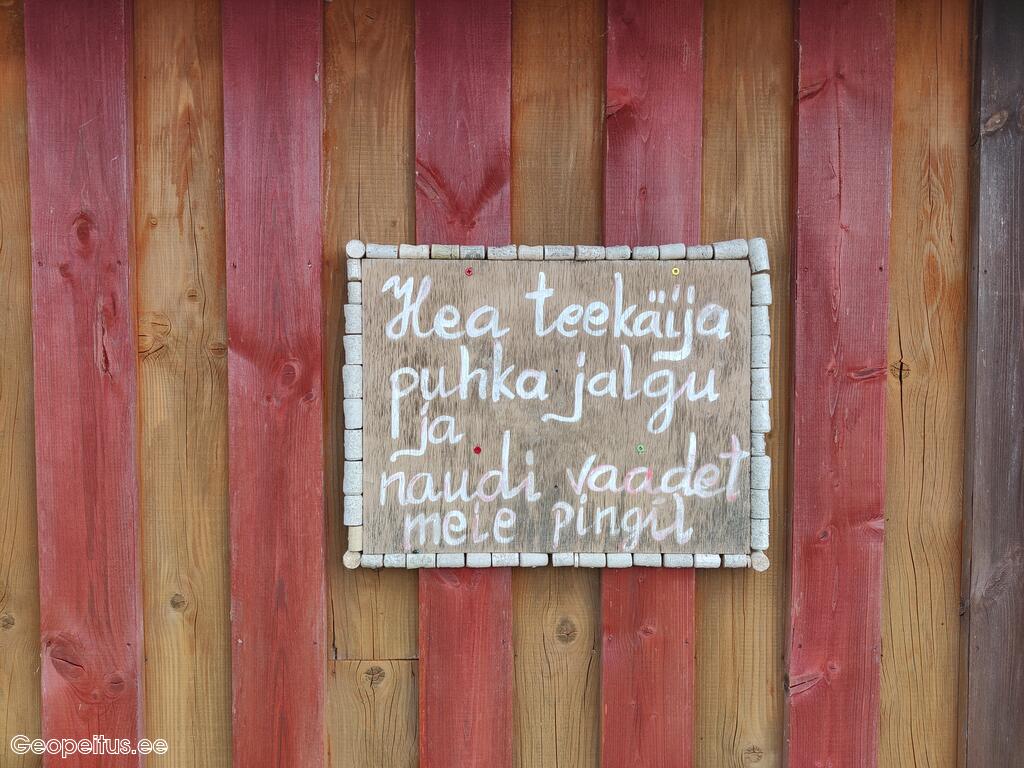 Hea teekäija
puhka jalgu
ja
naudi vaadet
meie pingil
Geopeitus.ee